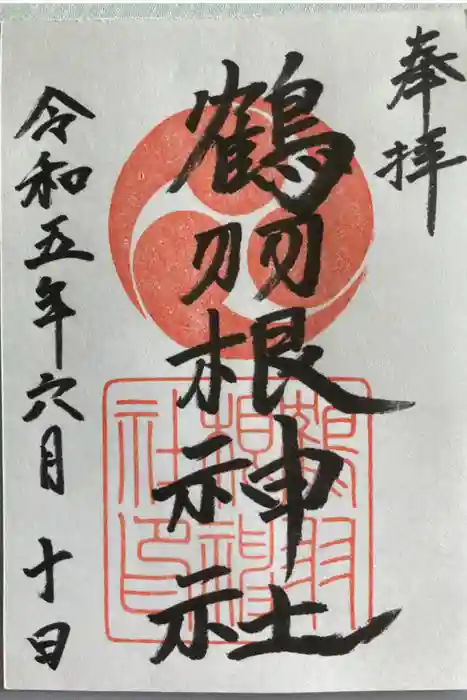 奉拝
鶴羽根神社
鶴羽根神社印
令和五年六月十日